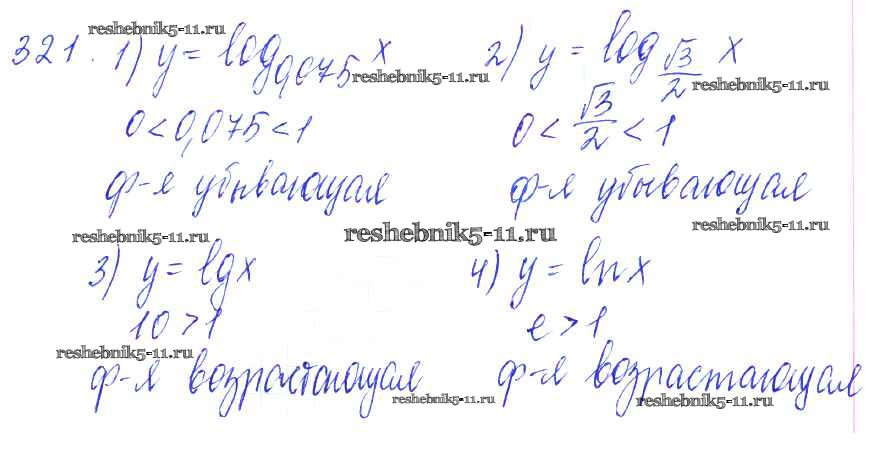 reshebnik5-11.ru
321. 1) y = log_{0,075} x 2) y = log_{√3/2} x
reshebnik5-11.ru reshebnik5-11.ru
0 < 0,075 < 1 0 < √3/2 < 1
ф-я убывающая ф-я убывающая
reshebnik5-11.ru reshebnik5-11.ru reshebnik5-11.ru
3) y = lg x 4) y = ln x
10 > 1 e > 1
reshebnik5-11.ru
ф-я возрастающая ф-я возрастающая
reshebnik5-11.ru reshebnik5-11.ru